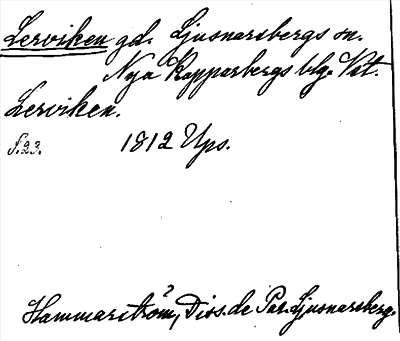 Lerviken gd. Ljusnarsbergs sn.
Nya Kopparbergs blg. Vstm.
Lerviken.
s. 23. 1812 Ups.
Hammarström, Diss. de Par. Ljusnarsberg.